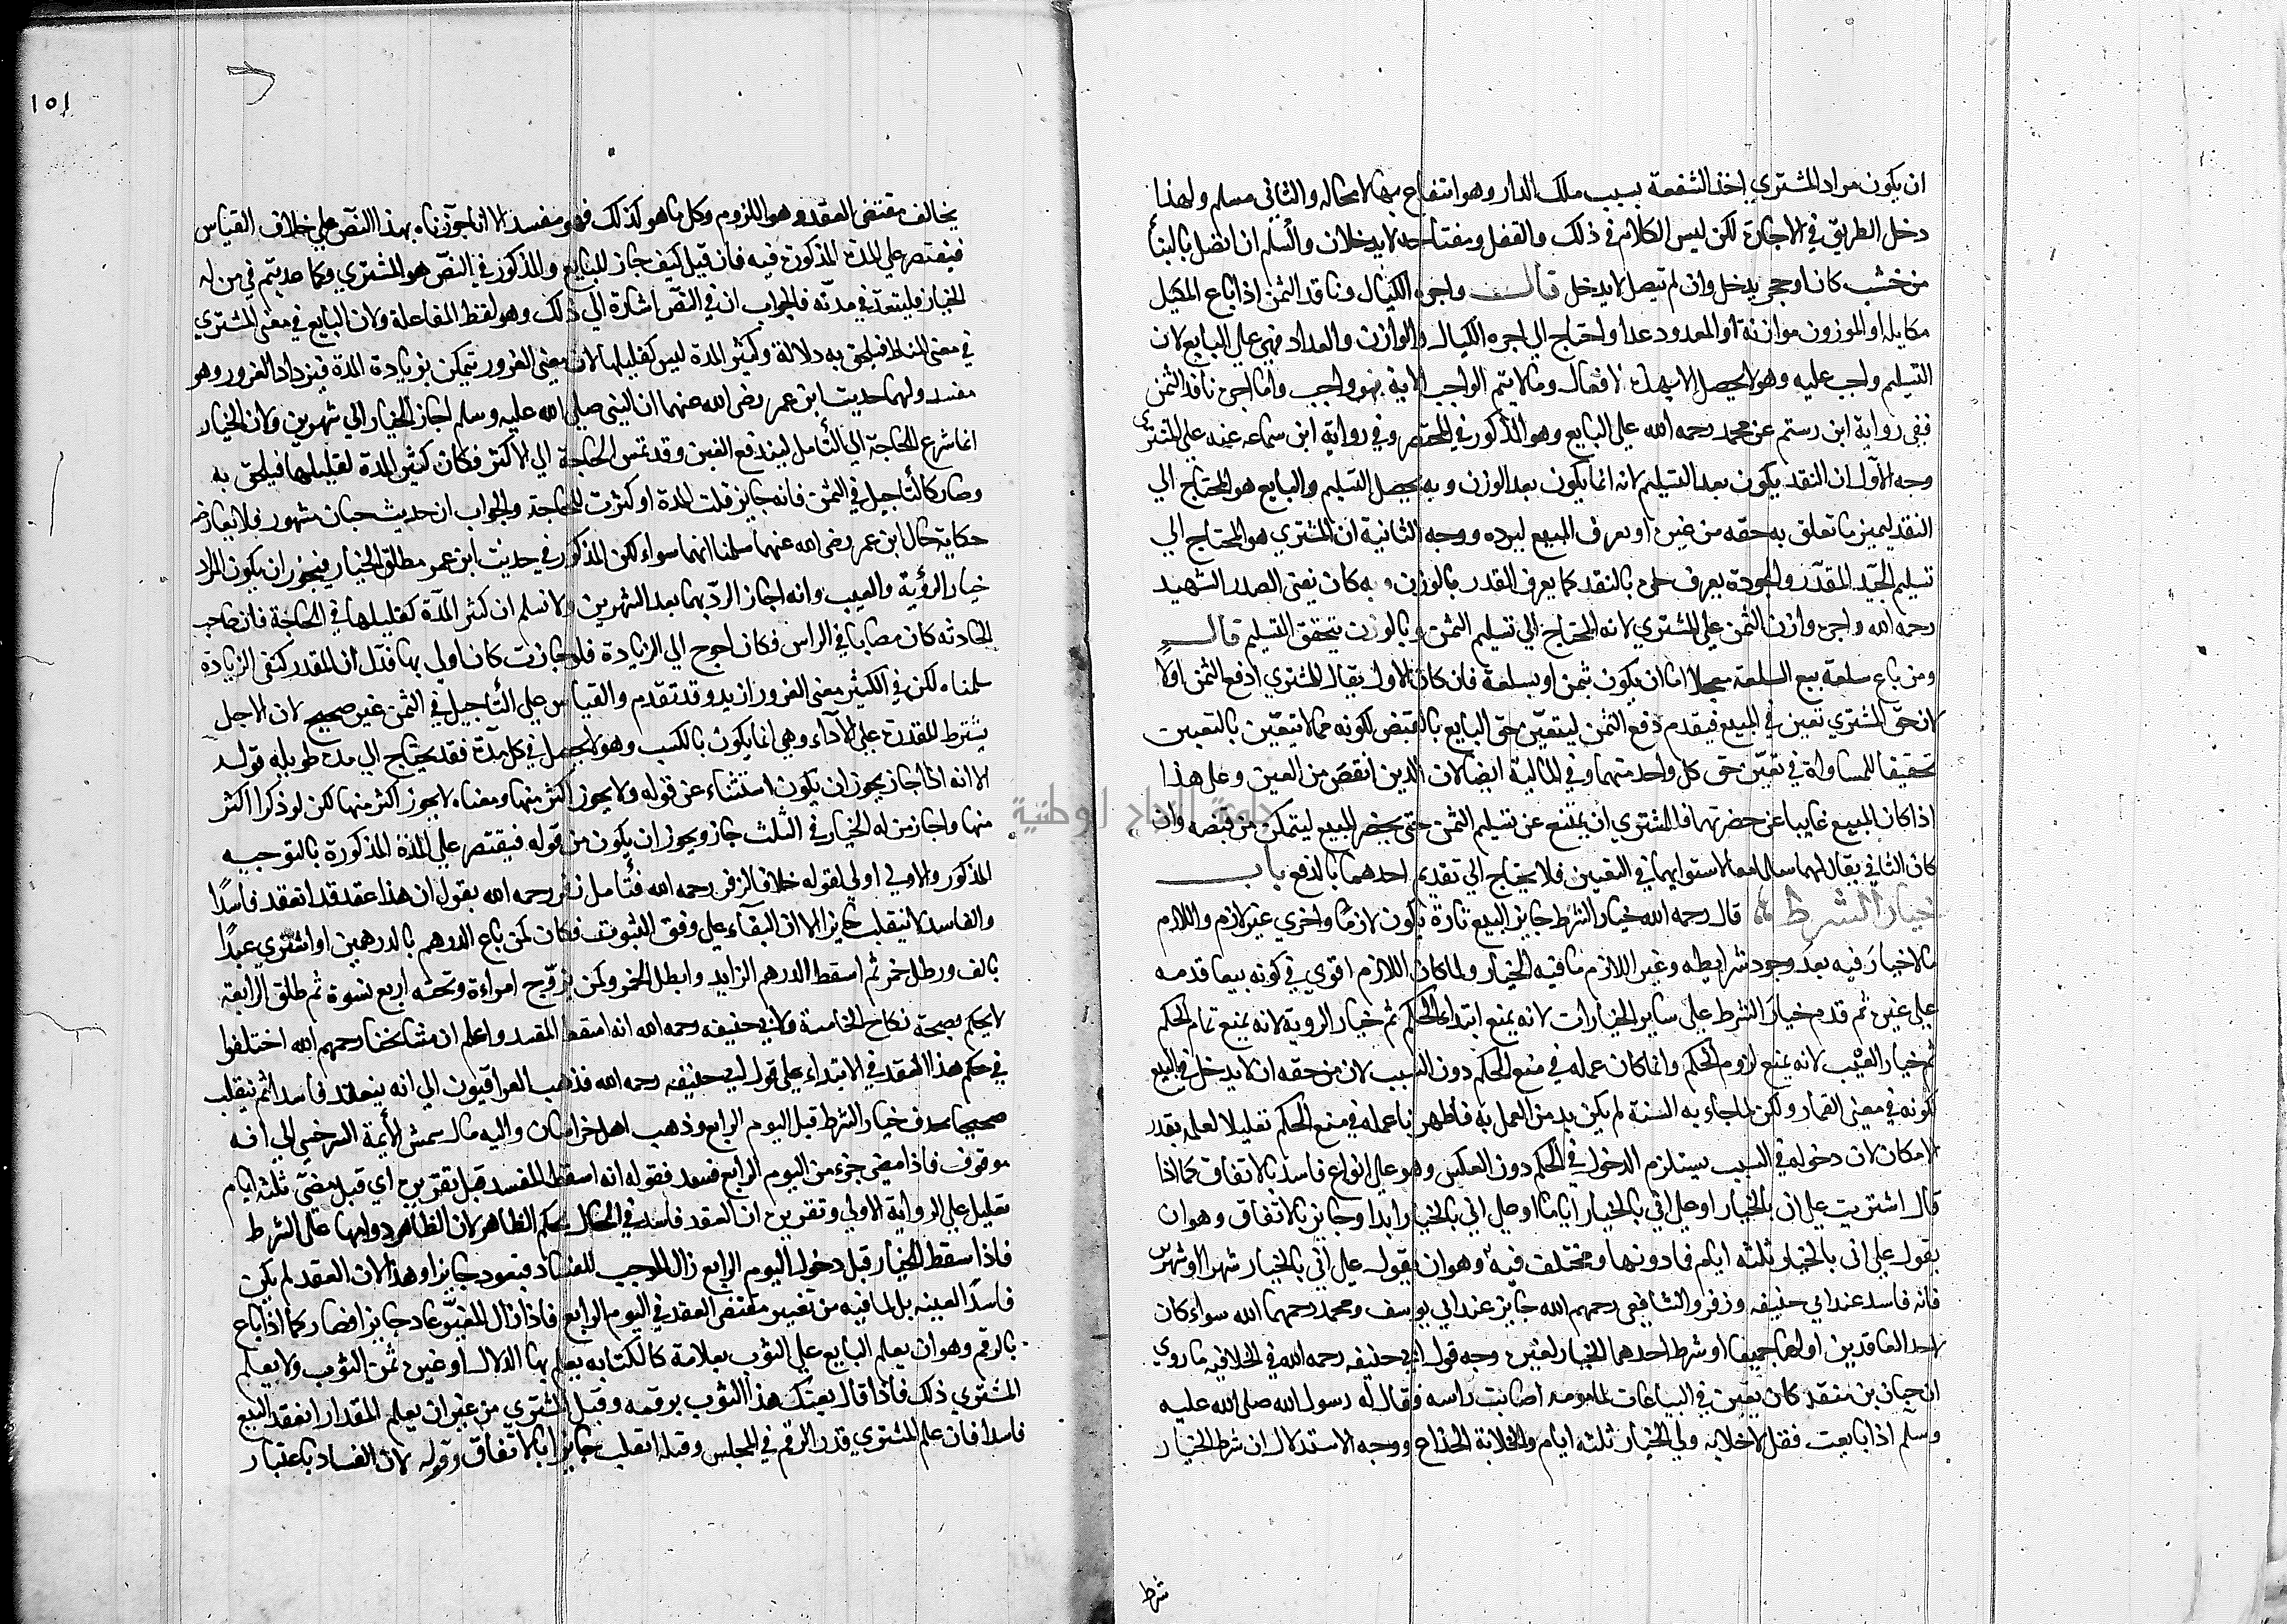 ان يكون مراد المشتري اخذ الشفعة بسبب ملك الدار وهو انتفاع بها لا محاله والثاني مسلم ولهذا
دخل الطريق في الاجارة لكن ليس الكلام في ذلك والقفل ومفتاحه لا يدخلان والسلم ان اتصل بالبناء
من خشب كان او حجر يدخل وان لم يتصل لا يدخل قال واجرة الكيال وناقد الثمن اذا باع المكيل
مكايلة او الموزون موازنة او المعدود عدا واحتاج الي اجره الكيال والوازن والعداد فهي علي البايع لان
التسليم واجب عليه وهو لا يحصل الا بهذه الافعال وما لا يتم الواجب الا به فهو واجب واما اجرة ناقد الثمن
ففي رواية ابن رستم عن محمد رحمه الله علي البايع وهو المذكور في المختصر وفي رواية ابن سماعه عنه علي المشتري
وجه الاول ان النقد يكون بعد التسليم لانه انما يكون بعد الوزن وبه يحصل التسليم والبايع هو المحتاج الي
النقد ليميز ما تعلق به حقه من غيره او يعرف المعيب ليرده ووجه الثانية ان المشتري هو المحتاج الي
تسليم الجيد المقدر والجودة يعرف بالنقد كما يعرف القدر بالوزن وبه كان يفتي الصدر الشهيد
رحمه الله واجرة وازن الثمن علي المشتري لانه المحتاج الي تسليم الثمن وبالوزن يتحقق التسليم قال
ومن باع سلعة بيع السلعة معجلا اما ان يكون بثمن او بسلعة فان كان الاول يقال للمشتري ادفع الثمن اولا
لان حق المشتري تعين في المبيع فيقدم دفع الثمن ليتعين حق البايع بالقبض لكونه مما لا يتعين بالتعيين
تحقيقا للمساواة في تعين حق كل واحد منهما وفي المالية ايضا لان الدين انقص من العين وعلي هذا
اذا كان المبيع غايبا عن حضرتهما فللمشتري ان يمتنع عن تسليم الثمن حتى يحضر المبيع ليتمكن من قبضه وان
كان الثاني يقال لهما سلما معا لاستوايهما في التعيين فلا يحتاج الي تقديم احدهما بالدفع باب
خيار الشرط قال رحمه الله خيار الشرط جايز البيع تارة يكون لازما واخري غير لازم واللازم
ما لا خيار فيه بعد وجود شرايطه وغير اللازم ما فيه الخيار ولما كان اللازم اقوي في كونه بيعا قدمه
علي غيره ثم قدم خيار الشرط علي ساير الخيارات لانه يمنع ابتداء الحكم ثم خيار الروية لانه يمنع تمام الحكم
ثم خيار العيب لانه يمنع لزوم الحكم وانما كان عمله في منع الحكم دون السبب لان من حقه ان لا يدخل في البيع
لكونه في معنى القمار ولكن لما جاء به السنة لم يكن بد من العمل به فاظهرنا عمله في منع الحكم تقليلا لعمله بقدر
الامكان لان دخوله في السبب يستلزم الدخول في الحكم دون العكس وهو علي انواع فاسد بالاتفاق كما اذا
قال اشتريت علي اني بالخيار او علي اني بالخيار اياما او علي اني بالخيار ابدا وجايز بالاتفاق وهو ان
يقول علي اني بالخيار ثلثه ايام فما دونها ومختلف فيه وهو ان يقول علي اني بالخيار شهرا او شهرين
فانه فاسد عند ابي حنيفه وزفر والشافعي رحمهم الله جايز عند ابي يوسف ومحمد رحمهما الله سواء كان
لاحد العاقدين او لهما جميعا او شرط احدهما الخيار لغيره وجه قول ابي حنيفه رحمه الله في الخلافيه ما روي
ان حبان بن منقد كان يغبن في البياعات لمامومه اصابت راسه فقال له رسول الله صلى الله عليه
وسلم اذا بايعت فقل لا خلابه ولي الخيار ثلثه ايام والخلابة الخداع ووجه الاستدلال ان شرط الخيار
شرط
١٥١
يخالف مقتضى العقد وهو اللزوم وكل ما هو كذلك فهو مفسد الا انا جوزناه بهذا النص علي خلاف القياس
فيقتصر علي المدة المذكورة فيه فان قيل كيف جاز للبايع والمذكور في النص هو المشتري وكما عديتم في من له
الخيار فليتعد في مدته فالجواب ان في النص اشارة الي ذلك وهو لفظ المفاعلة ولان البايع في معنى المشتري
في معنى المناط فيلحق به دلالة وكثير المدة ليس كقليلها لان معنى الغرور يتمكن بزيادة المدة فيزداد الغرور وهو
مفسد ولهما حديث ابن عمر رضى الله عنهما ان النبي صلى الله عليه وسلم اجاز الخيار الي شهرين ولان الخيار
انما شرع للحاجة الي التأمل ليندفع الغبن وقد تمس الحاجة الي الاكثر فكان كثير المدة كقليلها فيلحق به
وصار كالتأجيل في الثمن فانه جايز قلت المدة او كثرت للحاجة والجواب ان حديث حبان مشهور فلا يعارضه
حكاية حال ابن عمر رضى الله عنهما سلمنا انهما سواء لكن المذكور في حديث ابن عمر مطلق الخيار فيجوز ان يكون المراد
خيار الرؤية والعيب وانه اجاز الرد بهما بعد الشهرين ولا نسلم ان كثير المدة كقليلها في الحاجة فان صاحب
الحادثه كان مصابا في الراس فكان احوج الي الزيادة فلو جازت كان اولي بها فدل ان المقدر لنفي الزيادة
سلمناه لكن في الكثير معنى الغرور ازيد وقد تقدم والقياس علي التأجيل في الثمن غير صحيح لان الاجل
يشترط للقدرة علي الاداء وهي انما يكون بالكسب وهو لا يحصل في كل مدة فقد يحتاج الي مدة طويله قوله
الا انه اذا اجاز يجوز ان يكون استثناء عن قوله ولا يجوز اكثر منها ومعناه لا يجوز اكثر منها لكن لو ذكرا اكثر
منها واجاز من له الخيار في الثلث جاز ويجوز ان يكون من قوله فيقتصر علي المدة المذكورة بالتوجيه
المذكور والاول اولي لقوله خلافا لزفر رحمه الله فتأمل زفر رحمه الله يقول ان هذا عقد قد انعقد فاسدا
والفاسد لا ينقلب جايزا لان البقاء علي وفق الثبوت فكان كمن باع الدرهم بالدرهمين او اشتري عبدا
بالف ورطل خمر ثم اسقط الدرهم الزايد وابطل الخمر وكمن تزوج امراءة وتحته اربع نسوة ثم طلق الرابعة
لا يحكم بصحة نكاح الخامسة ولابي حنيفه رحمه الله انه اسقط المفسد واعلم ان مشايخنا رحمهم الله اختلفوا
في حكم هذا العقد في الابتداء علي قول ابي حنيفه رحمه الله فذهب العراقيون الي انه ينعقد فاسدا ثم ينقلب
صحيحا بحذف خيار الشرط قبل اليوم الرابع وذهب اهل خراسان واليه مال شمس الأيمة السرخسي الي انه
موقوف فاذا مضي جزء من اليوم الرابع فسد فقوله انه اسقط المفسد قبل تقرره اي قبل مضى ثلثه ايام
تعليل علي الرواية الاولي وتقريره ان العقد فاسد في الحال بحكم الظاهر لان الظاهر دوامها علي الشرط
فاذا سقط الخيار قبل دخول اليوم الرابع زال الموجب للفساد فيعود جايزا وهذا لان العقد لم يكن
فاسدا لعينه بل لما فيه من تغيير مقتضى العقد في اليوم الرابع فاذا زال المغير عاد جايزا فصار كما اذا باع
بالرقم وهو ان يعلم البايع علي الثوب بعلامة كالكتابه يعلم بها الدلال او غيره ثمن الثوب ولا يعلم
المشتري ذلك فاذا قال بعتك هذا الثوب برقمه وقبل المشتري من غير ان يعلم المقدار انعقد البيع
فاسدا فان علم المشتري قدر الرقم في المجلس وقبله انقلب جايزا بالاتفاق وقوله لان الفساد باعتبار
جامعة النجاح الوطنية